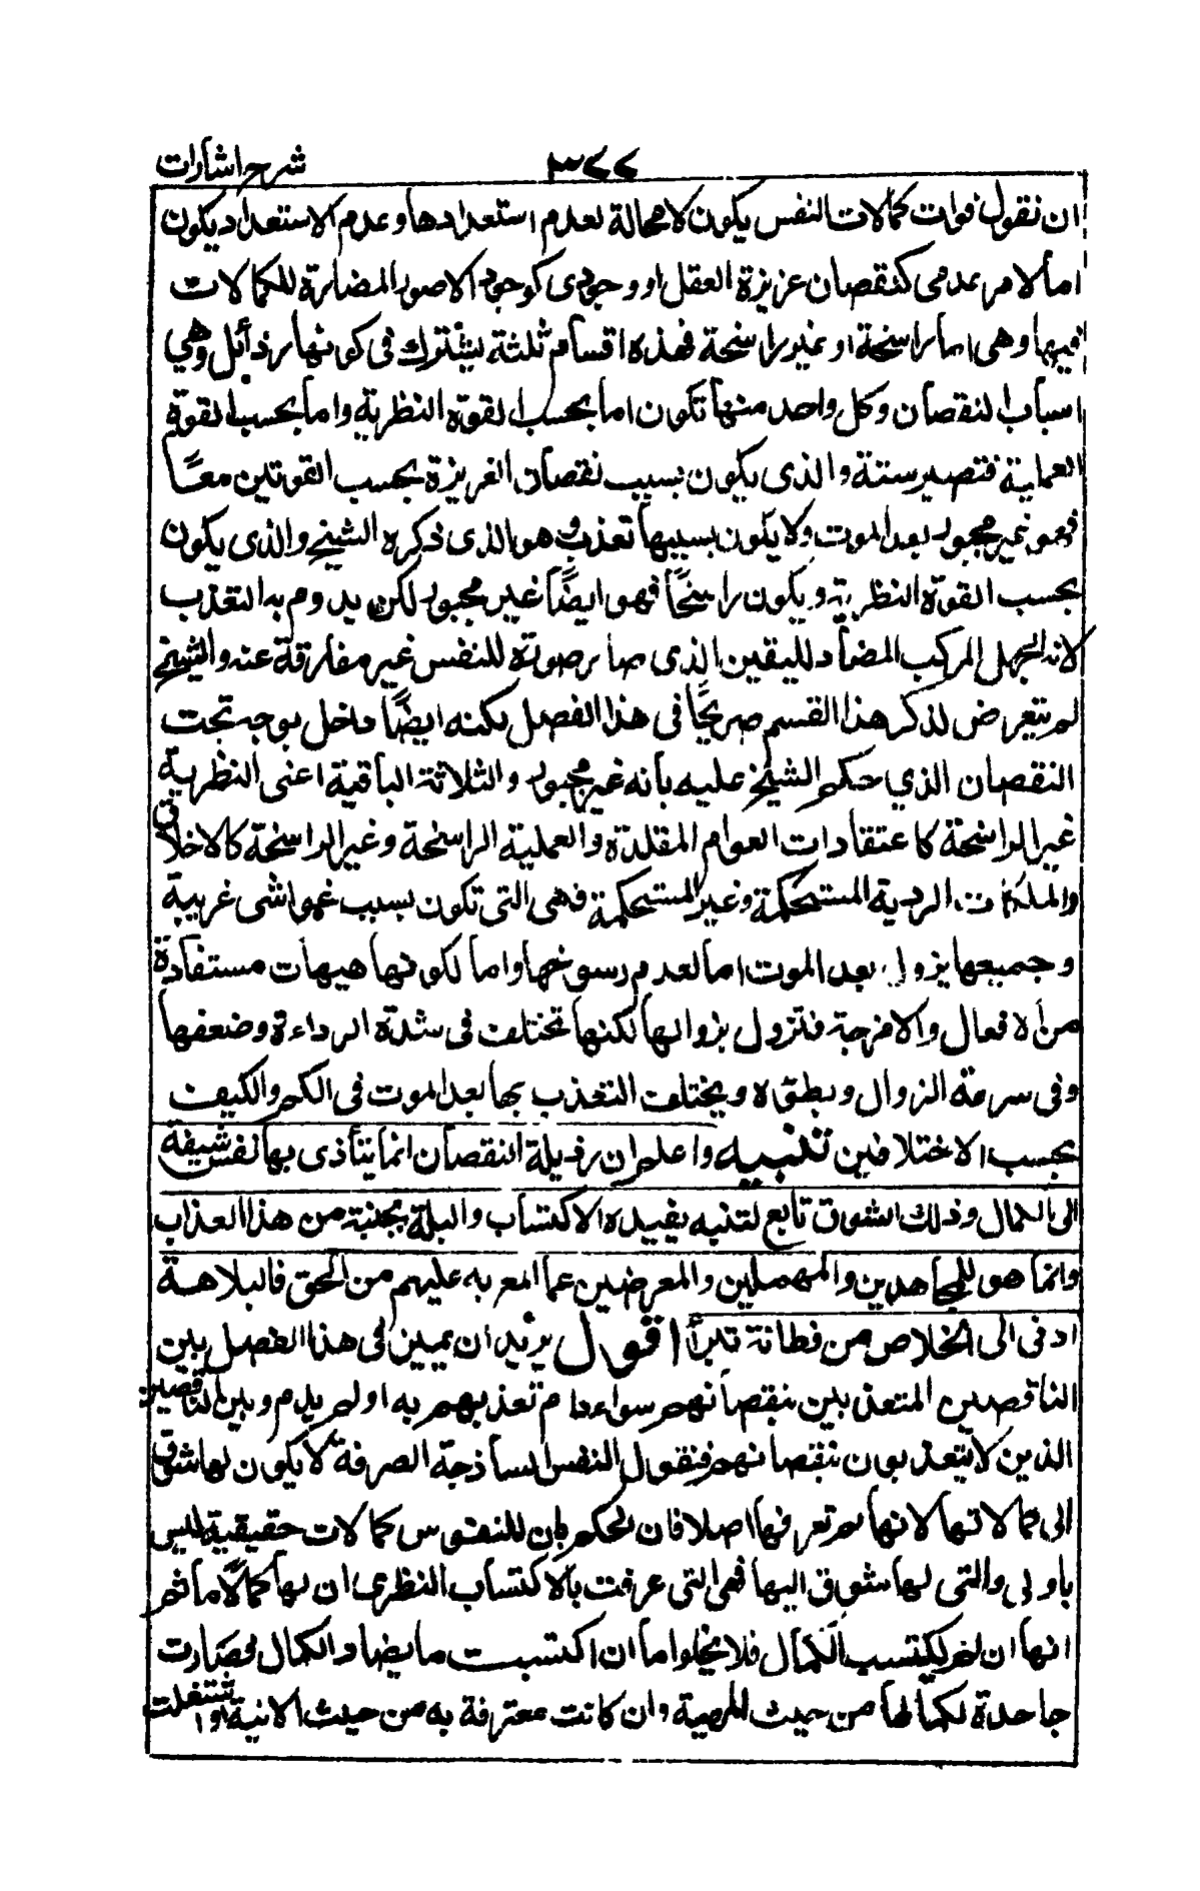 شرح اشارات ٣٤٤
ان نقول فوات كمالات النفس يكون لا محالة لعدم استعدادها وعدم الاستعداد يكون
اما لامر عدمى كنقصان غريزة العقل او وجودى كوجود الامور المضادة للكمالات
فيها وهى اما راسخة او غير راسخة فهذه اقسام ثلثة يشترك فى كونها رذائل وهي
اسباب النقصان وكل واحد منها تكون اما بحسب القوة النظرية واما بحسب القوة
العملية فتصير ستة والذى يكون بسبب نقصان الغريزة بحسب القوتين معًا
فهو غير مجبور بعد الموت ولا يكون بسببها تعذب وهو الذى ذكره الشيخ والذى يكون
بحسب القوة النظرية ويكون راسخًا فهو ايضًا غير مجبور لكن يدوم به التعذب
لانه الجهل المركب المضاد لليقين الذى صار صورة للنفس غير مفارقة عنه والشيخ
لم يتعرض لذكر هذا القسم صريحًا فى هذا الفصل لكنه ايضًا داخل بوجه تحت
النقصان الذي حكم الشيخ عليه بأنه غير مجبور والثلاثة الباقية اعنى النظرية
غير الراسخة كاعتقادات العوام المقلدة والعملية الراسخة وغير الراسخة كالاخلاق
والملكات الردية المستحكمة وغير المستحكمة فهى التى تكون بسبب غواشى غريبة
وجميعها يزول بعد الموت اما لعدم رسوخها واما لكونها هيهات مستفادة
من الافعال والامزجة فتزول بزوالها لكنها تختلف فى شدة الرداءة وضعفها
وفى سرعة الزوال وبطؤه ويختلف التعذب بها بعد الموت فى الكم والكيف
بحسب الاختلافين تنبيه واعلم ان رذيلة النقصان انما يتأذى بها نفس شيقة
الى الكمال وذلك الشوق تابع لتنبه يفيده الاكتساب والبله بجنبة من هذا العذاب
وانما هو للجاهدين والمهملين والمعرضين عما المع به عليهم من الحق فالبلاهة
ادنى الى الخلاص من فطانة تبرأ اقول يريد ان يميز فى هذا الفصل بين
الناقصين المتعذبين بنقصانهم سواء دام تعذبهم به او لم يدم وبين الناقصين
الذين لا يتعذبون بنقصانهم فنقول النفس الساذجة الصرفة لا يكون لها شوق
الى كمالاتها لانها لم تعرفها اصلا فان الحكم بان للنفوس كمالات حقيقية ليس
باولى والتى لها شوق اليها فهى التى عرفت بالاكتساب النظرى ان لها كمالًا ما ثم
انها ان لم يكتسب الكمال فلا يخلوا ما ان اكتسبت ما يضاد الكمال فصارت
جاحدة لكمالها من حيث المهية وان كانت معترفة به من حيث الانية او اشتغلت